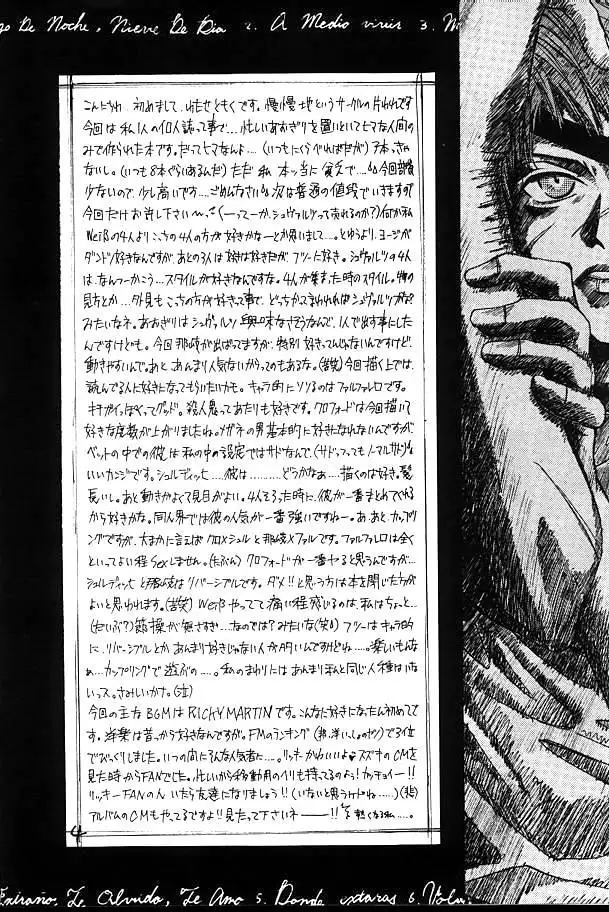 go De Noche, Nieve De Dia 2. A Medio vivir 3. M
こんにちわ 初めまして、ともくです。慢慢地というサークルの片われです
今回は私1人の個人誌って事で…、忙しいあおぎりを置いといてヒマな人間の
みで作られた本です。だってヒマなんよ…(いつもにくらべればだが)ア本っきゃ
ないし。(いつも8本ぐらいあるんだ)ただ 私 本っ当に貧乏で…。今回部数
少ないので、少し高いです…。ごめんなさい 次は普通の値段でいきますので
今回だけお許し下さい〜。(ーってーか、シュヴァルツって売れるのか?)何か私
Weißの4人よりこっちの4人の方が好きかなーとか思いまして…。とゆうより、ヨージが
ダントツ好きなんですが、あとの3人は 好きだが、フツーに好き。シュヴァルツの4人
は、なんつーかこう…スタイルが好きなんですな。4人が集まった時のスタイル。物の
見方とか…外見も こっちの方が好きって事で、どっちかってまわれればシュヴァルツかな
みたいなネ。あおぎりは シュヴァルツ 興味なさそうなんで、1人で出す事にした
んですけども。今回 那岐が出ばってますが、特別 好きってんじゃないんですけど、
動きやすいんで。あと、あんまり人気ないからってのもあるな。(苦笑)今回描く上では、
読んでる人に好きになってもらいたいかも。キャラ的にソソるのはファルファレロです。
キチガイっぽくってグッド。殺人鬼ってあたりも好きです。クロフォードは今回描いて
好きな度数が上がりましたね。メガネの男基本的に好きになれないんですが
ベットの中での彼は 私の中の設定ではサドなんで、(サドっつってもノーマルサド)
いいカンジです。シュルディッヒ……彼は………どうかなぁ…。描くのは好き。髪
長いし。あと動きがよくて見目がよい。4人そろった時に、彼が一番まとれてくれる
から好きかな。同人界では彼の人気が一番強いですねー。あ、あと、カップリ
ングですが、大まかに言えば クロ×シュル と 那岐×ファル です。ファルファレロは全く
といってよい程 Sexしません。(たぶん) クロフォードが一番ヤると思うんですが…
シュルディッヒと那岐は リバーシブルです。ダメ!!と思う方は本を閉じた方が
よいと思われます。(苦笑) Weißやってて 痛い程 感じるのは、私はちょっと…
(だいぶ?) 節操が無さすぎ…なのでは?みたいな(笑) フツーは キャラ的
に、リバーシブルとか あんまり好きじゃない人が多いんですけどね……。楽しいもんな
ぁ…カップリングで 遊ぶの…。私のまわりには あんまり私と同じ人種はいな
いっス。さみしいカナ。(泣)
今回の主な BGMは RICKY MARTIN です。こんなに好きになったん初めてで
す。洋楽は昔っから好きなんですが。FMのランキング で3位
でびっくりしました。いつの間にそんな人気者に…。リッキーかわいいよ♥ スズキのCMを
見た時からFANでした。忙しいから 持ってるのよう!カッチョイー!!
リッキーFANの人 いたら友達になりましょう!!(いないと思うケドね……)(悲)
アルバムのCMもやってるですよ!!見たって下さいネ———!!
4
Extraño. Te Olvido, Te Amo 5. Donde estaras 6. Volv